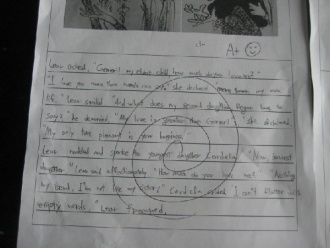 A+
Lear asked, "Goneril my eldest child, how much do you love me?"
"I love you more than words can say," she declared
life." Lear smiled "And what does my second daughter Regan have to
say?" he demanded "My love is greater than Goneril's" she declared
"My only true pleasure is your happiness
Lear nodded and spoke to his youngest daughter Cordelia. "Now, dearest
daughter," Lear said affectionately "How much do you love me?" "Nothing
my Lord, I'm not like my sisters" Cordelia I can't flatter with
empty words." Lear frowned.